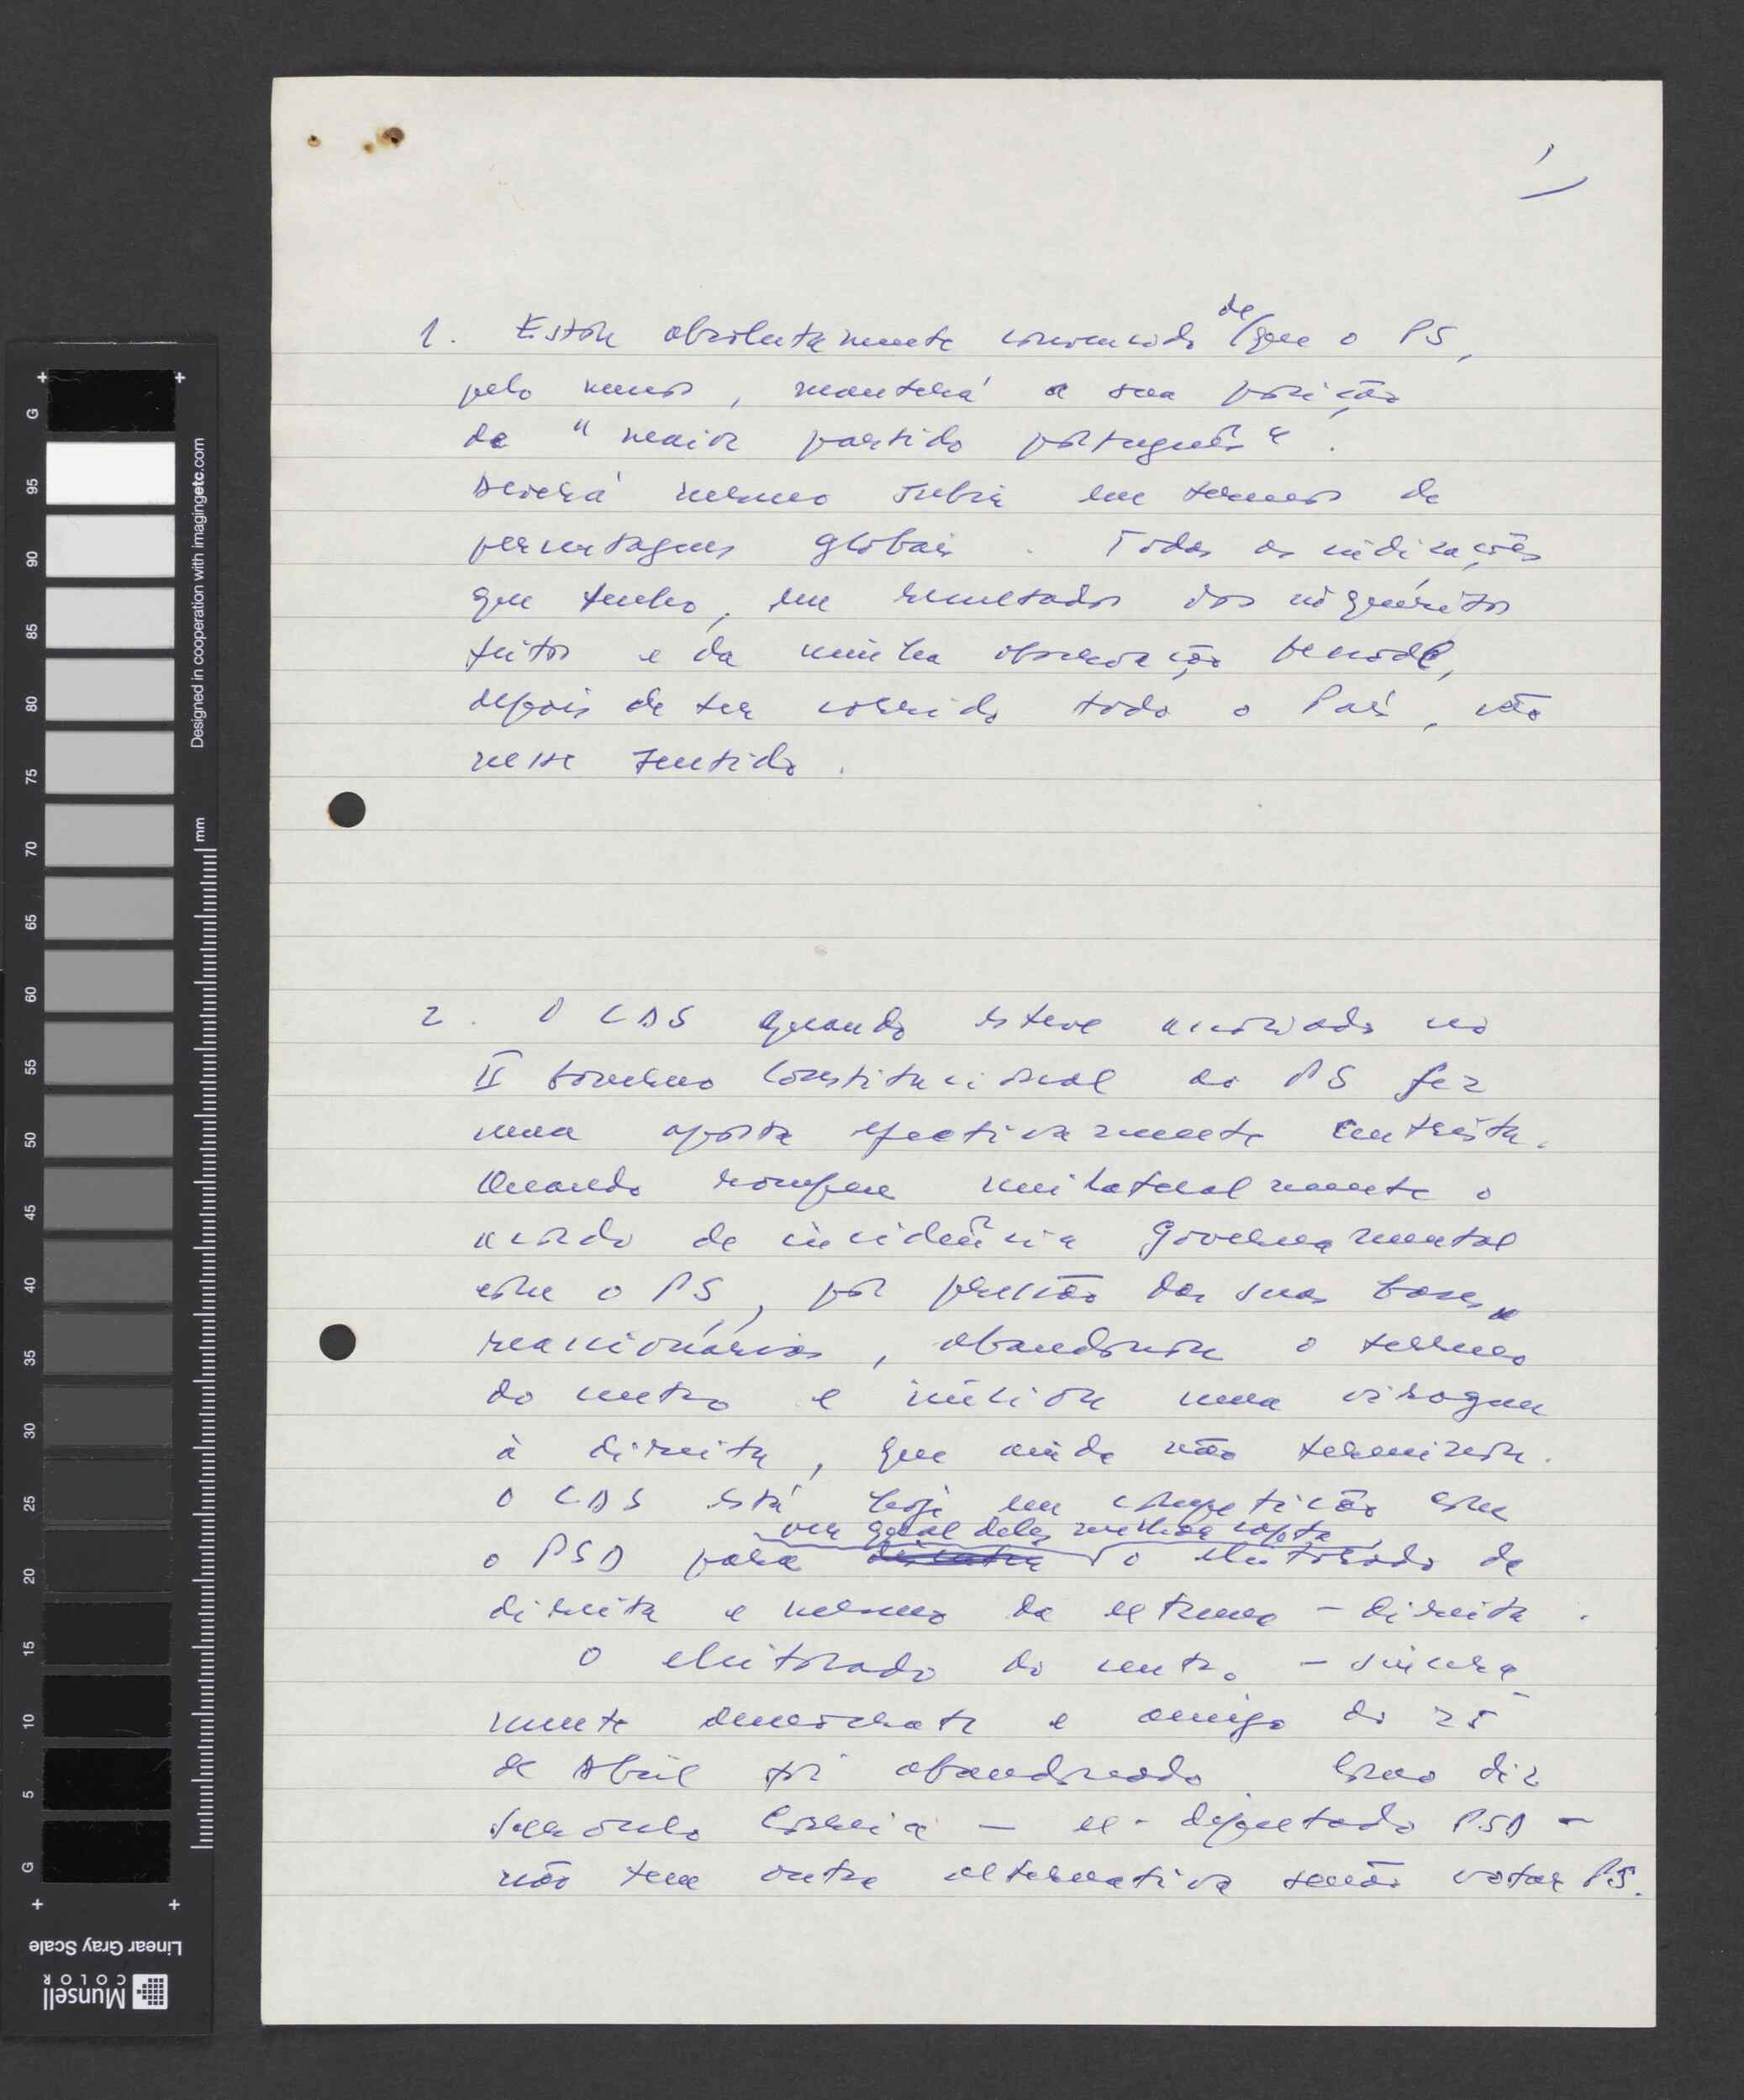 1
de
1. Estou absolutamente convencido que o PS,
pelo menos, manterá a sua posição
de "maior partido português".
Deverá mesmo subir em termos de
percentagens globais. Todas as indicações
que tenho, em resultados dos inquéritos
feitos e da minha observação pessoal,
depois de ter corrido todo o País, vão
nesse sentido.
2. O CDS quando esteve associado no
II Governo Constitucional ao PS fez
uma aposta efectivamente centrista.
Quando rompeu unilateralmente o
acordo de incidência governamental
com o PS, por pressão das suas bases
reaccionárias, abandonou o terreno
do centro e iniciou uma viragem
à direita, que ainda não terminou.
O CDS está hoje em competição com
ver qual deles melhor capta
o PSD para disputar o eleitorado de
direita e mesmo da extrema-direita.
O eleitorado do centro - sincera
mente democrata e amigo do 25
de Abril foi abandonado. Como diz
Correia — ex-deputado PSD -
não tem outra alternativa senão votar PS.
Designed in cooperation with imagingetc.com
mm
G
95
90
85
80
75
70
65
60
55
50
45
40
35
30
25
20
15
10
5
G
Linear Gray Scale
Munsell
COLOR